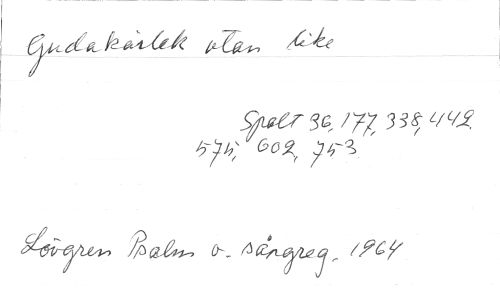 Gudakärlek utan like
Spalt 36, 177, 338, 442
575, 602, 753
Lövgren Psalm o. sångreg. 1964